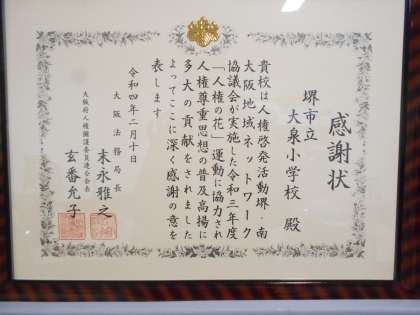 感謝状
堺市立
大泉小学校 殿
貴校は人権啓発活動堺・南
大阪地域ネットワーク
協議会が実施した令和三年度
「人権の花」運動に協力され
人権尊重思想の普及高揚に
多大の貢献をされました
よってここに深く感謝の意を
表します
令和四年二月十日
大阪法務局長
末永雅之
大阪府人権擁護委員連合会会長
玄番允子